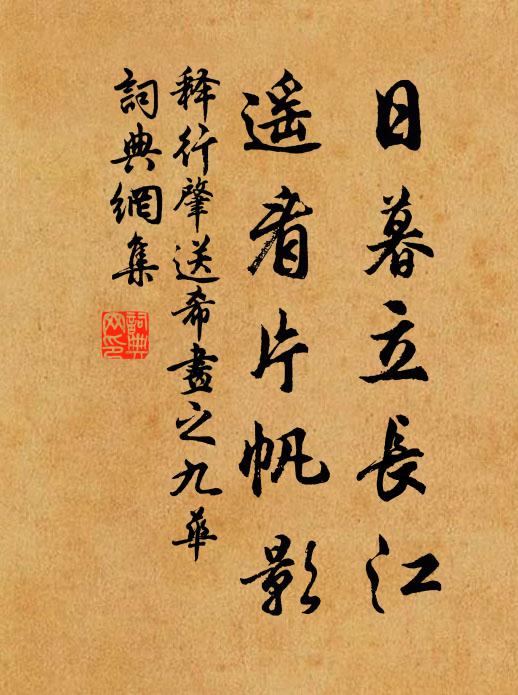 日暮立長江
遥看片帆影
释行肇送希晝之九華
詞典網集
詞典网印